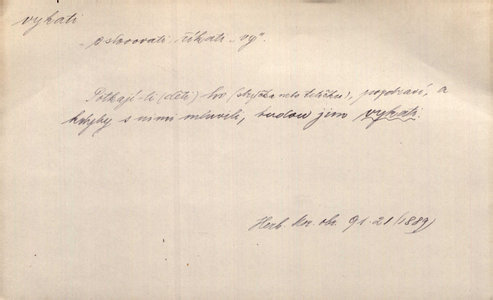 vykati
oslovovati, říkati „vy“.
Potkají-li (děti) ho (strýčka neto tetičku), pozdraví, a
kdyby s nimi mluvili, budou jim vykati.
Herb. Mor. obr. 91.21 (1889)